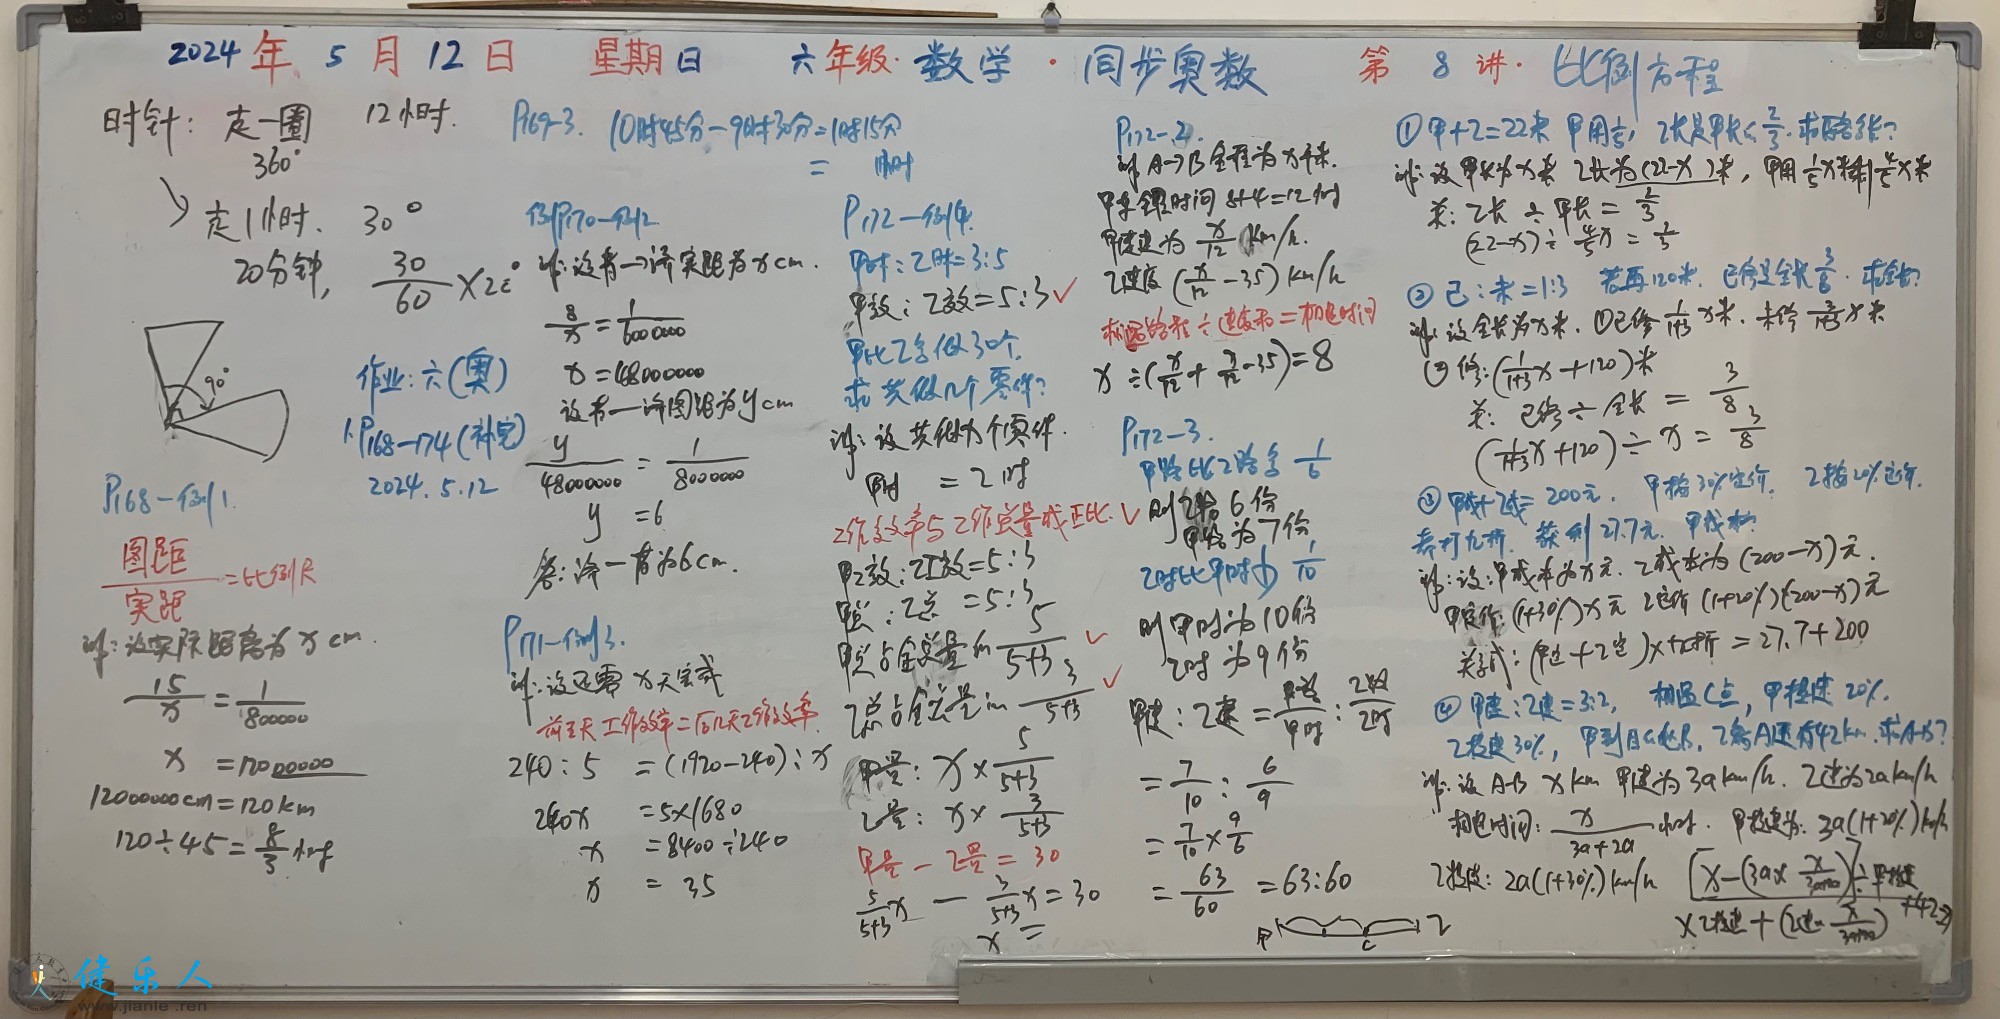 2024年5月12日 星期日 六年级·数学·同步奥数 第8讲·比例方程
时针: 走一圈 12小时.
360°
走1小时. 30°
20分钟, 30/60 ×20°
90°
作业: 六(奥)
1.P168-174(补完)
2024.5.12
P168-例1.
图距/实距 =比例尺
解:设实际距离为x cm.
15/x = 1/800000
x =12000000
12000000cm=120km
120÷45=8/3小时
P169-3. 10时45分-9时30分=1时15分
= 时
P170-例2
8/x = 1/6000000
x =48000000
设 图距为y cm
y/48000000 = 1/8000000
y =6
P171-例3.
解:设还需x天完成
前5天工作效率=后几天工作效率
240:5 =(1920-240):x
240x =5×1680
x =8400÷240
x = 35
P172-例4.
甲时:乙时=3:5
甲效:乙效=5:3✓
甲比乙多做30个.
求共做几个零件?
解:设共做x个零件.
甲时 =乙时
工作效率与工作总量成正比.✓
甲工效:乙工效=5:3
甲总:乙总 =5:3
甲总占全总量的5/(5+3) ✓
乙总占全总量的3/(5+3) ✓
甲量: x×5/(5+3)
乙量: x×3/(5+3)
甲量-乙量= 30
5/(5+3)x - 3/(5+3)x=30
x =
P172-2.
设A→B全程为x千米.
甲车全程时间8+4=12小时
甲速为x/12 km/h.
乙速度(x/12-35)km/h
相遇路程÷速度和=相遇时间
x÷(x/12+x/12-35)=8
P172-3.
甲路比乙路多1/6
则乙路6份
甲路为7份
乙时比甲时少1/10
则甲时为10份
乙时为9份
甲速:乙速=甲路/甲时:乙路/乙时
=7/10:6/9
=7/10×9/6
=63/60 =63:60
甲 C 乙
①甲+乙=22米 甲用1/5, 乙长是甲长的2/3.求
解:设甲长为x米 乙长为(22-x)米, 甲用1/5x米剩4/5x米
关: 乙长÷甲长=2/3
(22-x)÷4/5x=2/3
②已:未=1:3 若再120米. 已修是全长3/8. 求全长?
解:设全长为x米.①已修1/(1+3)x米. 未修3/(1+3)x米
②修:(1/(1+3)x+120)米
关: 已修÷全长 = 3/8
(1/(1+3)x+120)÷x = 3/8
③甲成+乙成=200元. 甲按30%定价. 乙按20%定价.
打九折. 获利27.7元. 甲成本?
解:设:甲成本为x元. 乙成本为(200-x)元.
甲定价:(1+30%)x元 乙定价(1+20%)(200-x)元
关系式:(甲定+乙定)× 折=27.7+200
④甲速:乙速=3:2, 相遇C点, 甲提速20%.
乙提速30%, 甲到 B, 乙离A还有42km.求A-B?
解:设A-B x km 甲速为3a km/h. 乙速为2a km/h
相遇时间: x/(3a+2a) 小时. 甲提速为:3a(1+20%)km/h
乙提速: 2a(1+30%)km/h [x-(3a×x/(3a+2a))]÷甲提速
×乙提速+(2a× x/(3a+2a)) +42=x
健乐人
www.jianle.ren